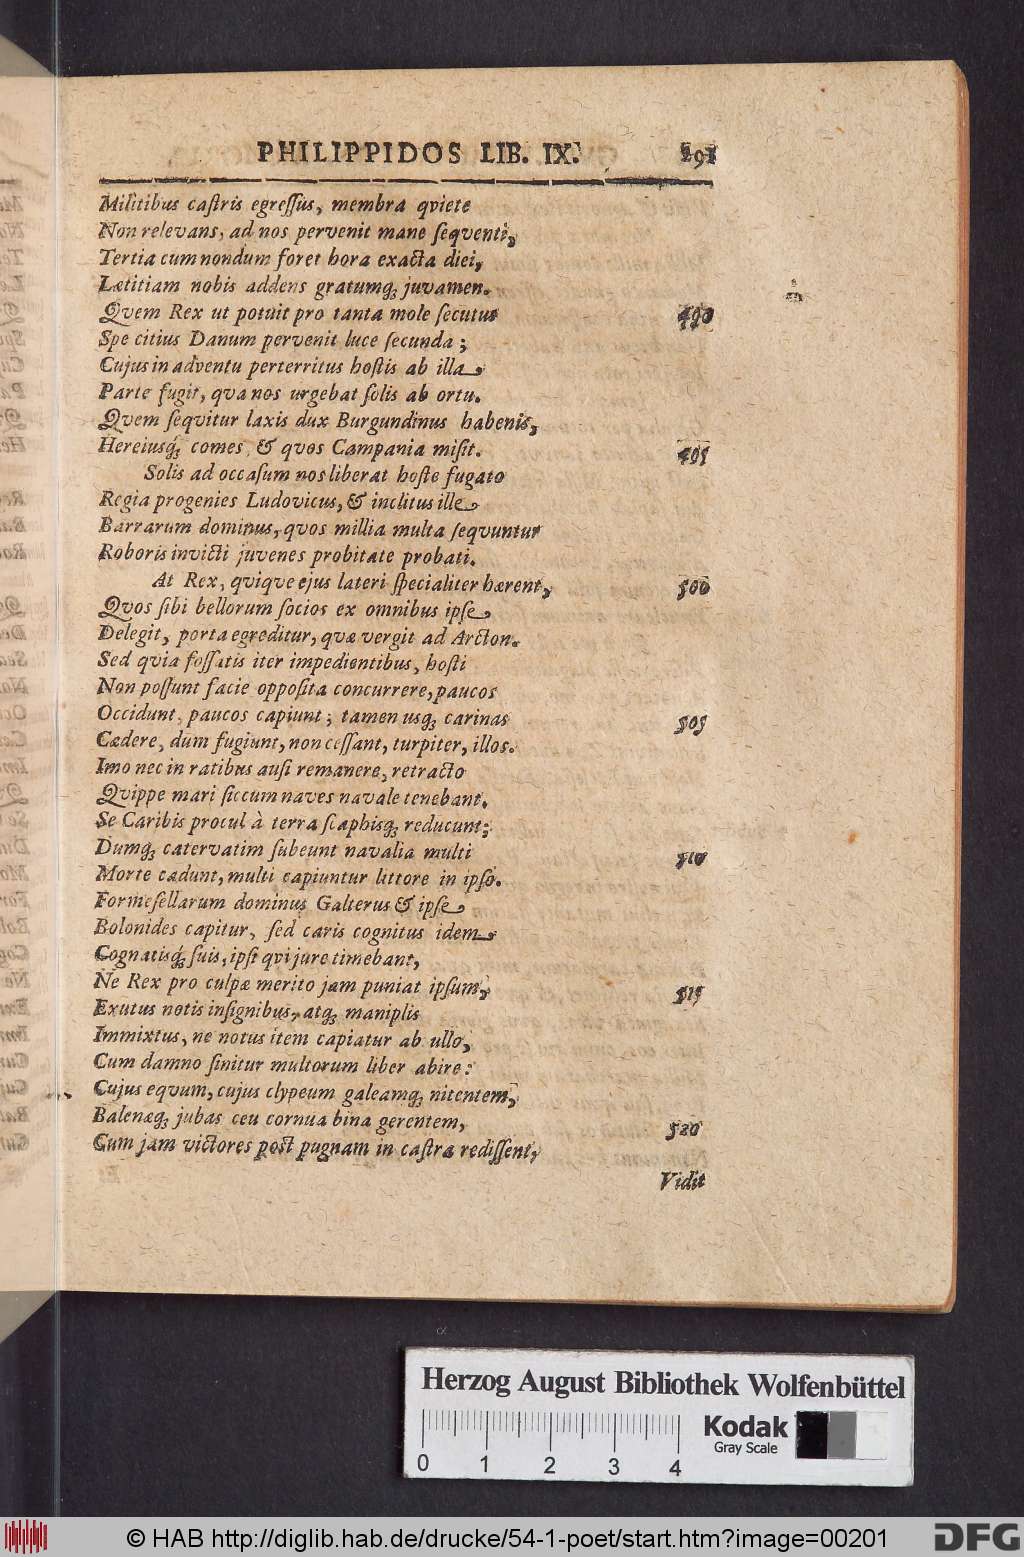 PHILIPPIDOS LIB. IX. 191
Militibus caſtris egreſſus, membra qviete
Non relevans, ad nos pervenit mane ſeqventi,
Tertia cum nondum foret hora exacta diei,
Lætitiam nobis addens gratumq; juvamen.
Qvem Rex ut potuit pro tanta mole ſecutus 490
Spe citius Danum pervenit luce ſecunda;
Cujus in adventu perterritus hoſtis ab illa
Parte fugit, qva nos urgebat ſolis ab ortu.
Qvem ſeqvitur laxis dux Burgundinus habenis,
Hereiusq; comes, & qvos Campania miſit. 495
Solis ad occaſum nos liberat hoſte fugato
Regia progenies Ludovicus, & inclitus ille
Barrarum dominus, qvos millia multa ſeqvuntur
Roboris invicti juvenes probitate probati.
At Rex, qviqve ejus lateri ſpecialiter hærent, 500
Qvos ſibi bellorum ſocios ex omnibus ipſe
Delegit, porta egreditur, qvæ vergit ad Arcton.
Sed qvia foſſatis iter impedientibus, hoſti
Non poſſunt facie oppoſita concurrere, paucos
Occidunt, paucos capiunt; tamen usq; carinas 505
Cædere, dum fugiunt, non ceſſant, turpiter, illos.
Imo nec in ratibus auſi remanere, retracto
Qvippe mari ſiccum naves navale tenebant.
Se Caribis procul à terra ſcaphisq; reducunt;
Dumq; catervatim ſubeunt navalia multi 510
Morte cadunt, multi capiuntur littore in ipſo.
Formeſellarum dominus Galterus & ipſe
Bolonides capitur, ſed caris cognitus idem
Cognatisq; ſuis, ipſi qvi jure timebant,
Ne Rex pro culpæ merito jam puniat ipſum, 515
Exutus notis inſignibus, atq; maniplis
Immixtus, ne notus item capiatur ab ullo,
Cum damno ſinitur multorum liber abire:
Cujus eqvum, cujus clypeum galeamq; nitentem,
Balenæq; jubas ceu cornua bina gerentem, 520
Cum jam victores post pugnam in caſtra rediſſent,
Vidit
Herzog August Bibliothek Wolfenbüttel
Kodak
Gray Scale
0 1 2 3 4
© HAB http://diglib.hab.de/drucke/54-1-poet/start.htm?image=00201
DFG